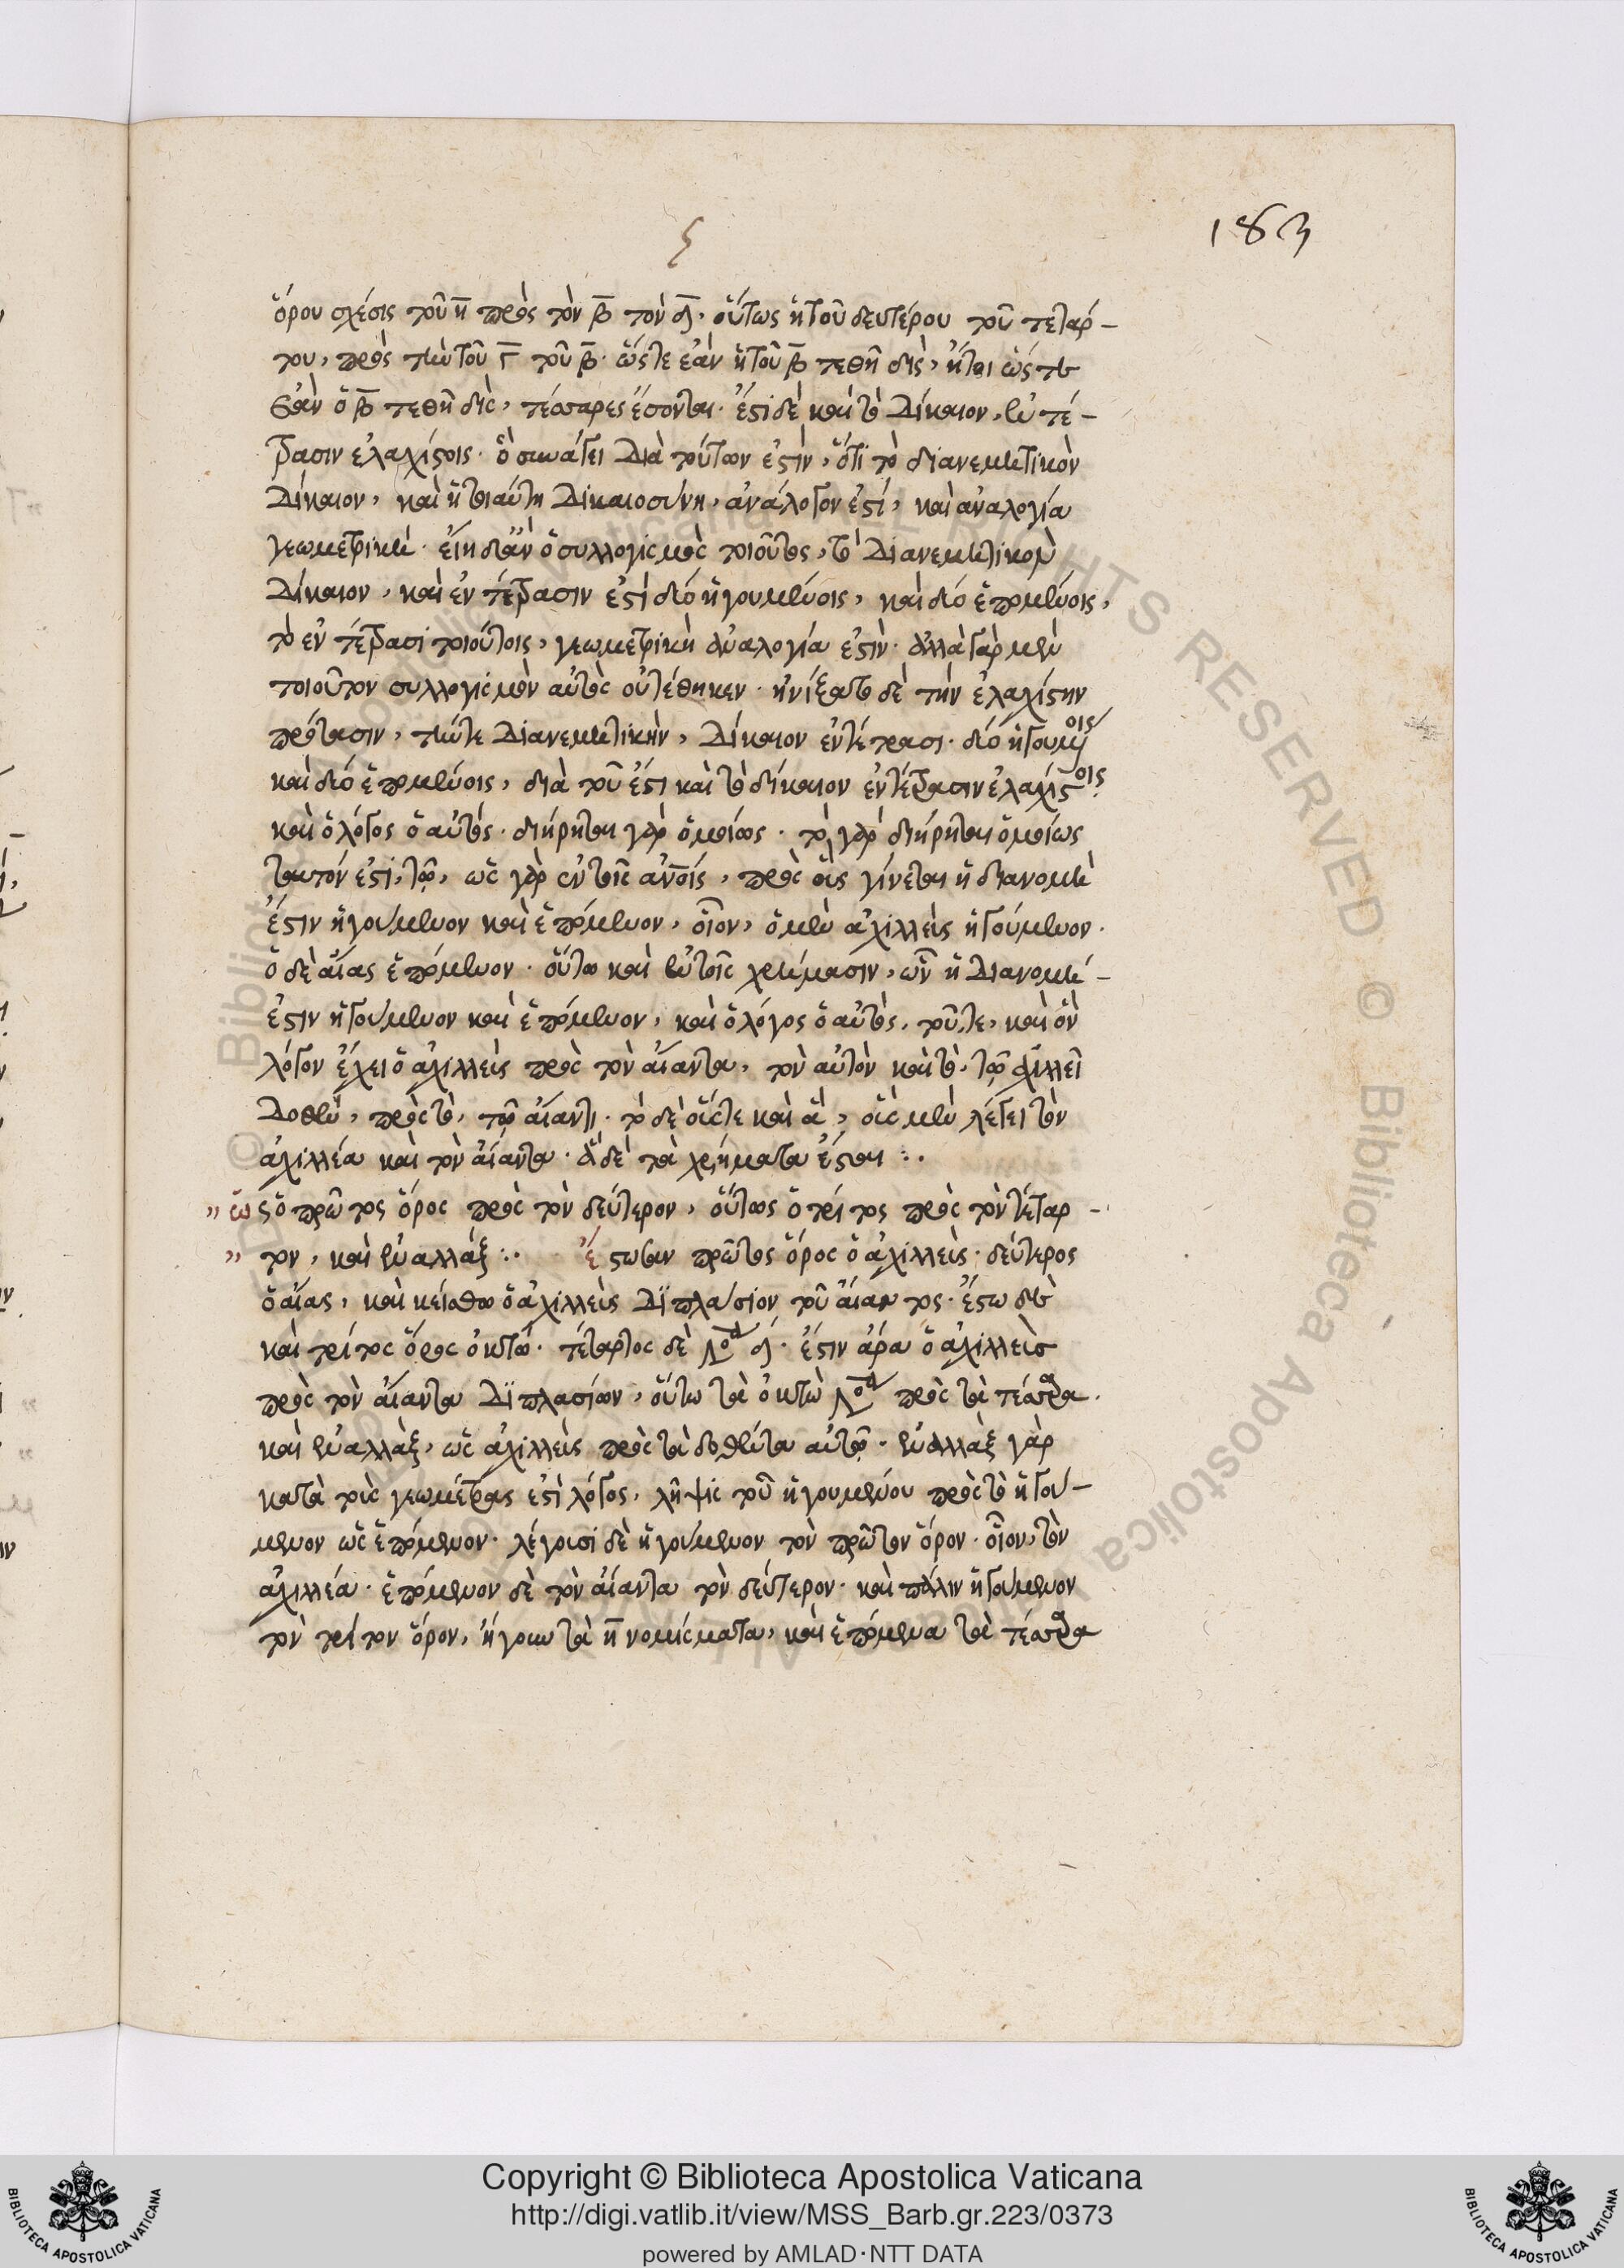 ς
183
ὅρου σχέσις τοῦ η πρὸς τὸν β τὸν δ, οὕτως ἡ τοῦ δευτέρου τοῦ τετάρ-
του, πρὸς τὴν τοῦ γ τοῦ β. ὥστε ἐὰν ἡ τοῦ β τεθῇ δὶς, ἤτοι ὥστε
ἐὰν ὁ β τεθῇ δὶς, τέσσαρες ἔσονται. ἔστι δὲ καὶ τὸ δίκαιον, ἐν τέ-
τρασιν ἐλαχίστοις. ὃ συνάγει διὰ τούτων ἐστὶν, ὅτι τὸ διανεμητικὸν
δίκαιον, καὶ ἡ τοιαύτη δικαιοσύνη, ἀνάλογον ἐστί, καὶ ἀναλογία
γεωμετρική. εἴη δ' ἂν ὁ συλλογισμὸς τοιοῦτος, τὸ διανεμητικὸν
δίκαιον, καὶ ἐν τέτρασιν ἐστὶ δυό ἡγουμένοις, καὶ δυό ἑπομένοις,
τὸ ἐν τέτρασι τοιούτοις, γεωμετρικὴ ἀναλογία ἐστὶν. ἀλλὰ γὰρ μὲν
τοιοῦτον συλλογισμὸν αὐτὸς οὐ τέθηκεν. ἠνίξατο δὲ τὴν ἐλαχίστην
πρότασιν, τήν τε διανεμητικὴν, δίκαιον ἐν τέτρασι. δυό ἡγουμένοις
καὶ δυό ἑπομένοις, διὰ τοῦ ἔστι καὶ τὸ δίκαιον ἐν τέτρασιν ἐλαχίστοις
καὶ ὁ λόγος ὁ αὐτός. διῄρηται γὰρ ὁμοίως. τὸ γὰρ διῄρηται ὁμοίως
ταυτόν ἐστι, τῷ, ὡς γὰρ ἐν τοῖς ἀνοῖς, πρὸς οἷς γίνεται ἡ διανομὴ
ἔστιν ἡγούμενον καὶ ἑπόμενον, οἷον, ὁ μὲν ἀχιλλεὺς ἡγούμενον.
ὁ δὲ αἴας ἑπόμενον. οὕτω καὶ ἐν τοῖς χρήμασιν, ὧν ἡ διανομή-
ἐστιν ἡγούμενον καὶ ἑπόμενον, καὶ ὁ λόγος ὁ αὐτὸς. τοῦτε, καὶ ὃν
λόγον ἔχει ὁ ἀχιλλεὺς πρὸς τὸν αἴαντα, τὸν αὐτὸν καὶ τὸ, τῷ ἀχιλλεῖ
δοθὲν, πρὸς τὸ, τῷ αἴαντι. τὸ δὲ οἷς τε καὶ ἃ, οἷς μὲν λέγει τὸν
ἀχιλλέα καὶ τὸν αἴαντα. ἃ δὲ τὰ χρήματα ἔσται :.
" ὡς ὁ πρῶτος ὅρος πρὸς τὸν δεύτερον, οὕτως ὁ τρίτος πρὸς τὸν τέταρ-
" τον, καὶ ἐναλλὰξ :. ἔστωσαν πρῶτος ὅρος ὁ ἀχιλλεὺς. δεύτερος
ὁ αἴας, καὶ κείσθω ὁ ἀχιλλεὺς διπλάσιον τοῦ αἴαντος. ἔστω δὲ
καὶ τρίτος ὅρος ὀκτώ. τέταρτος δὲ δ. ἔστιν ἄρα ὁ ἀχιλλεὺς
πρὸς τὸν αἴαντα διπλασίων, οὕτω τὰ ὀκτὼ πρὸς τὰ τέσσαρα.
καὶ ἐναλλὰξ, ὡς ἀχιλλεὺς πρὸς τὰ δοθέντα αὐτῷ. ἐναλλὰξ γὰρ
κατὰ τοὺς γεωμέτρας ἐστὶ λόγος, λῆψις τοῦ ἡγουμένου πρὸς τὸ ἡγού-
μενον ὡς ἑπόμενον. λέγουσι δὲ ἡγούμενον τὸν πρῶτον ὅρον. οἷον, τὸν
ἀχιλλέα. ἑπόμενον δὲ τὸν αἴαντα τὸν δεύτερον. καὶ πάλιν ἡγούμενον
τὸν τρίτον ὅρον, ἤγουν τὰ η νομίσματα, καὶ ἑπόμενα τὰ τέσσαρα
Copyright © Biblioteca Apostolica Vaticana
http://digi.vatlib.it/view/MSS_Barb.gr.223/0373
powered by AMLAD·NTT DATA